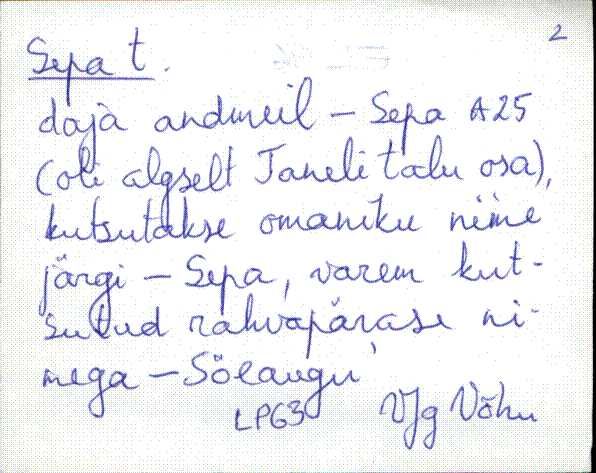 2
Sepa t.
daja andmeil – Sepa A25
(oli algselt Taneli talu osa),
kutsutakse omaniku nime
järgi – Sepa, varem kut-
sutud rahvapärase ni-
mega – Söeaugu
LPG3 VJg Võhu